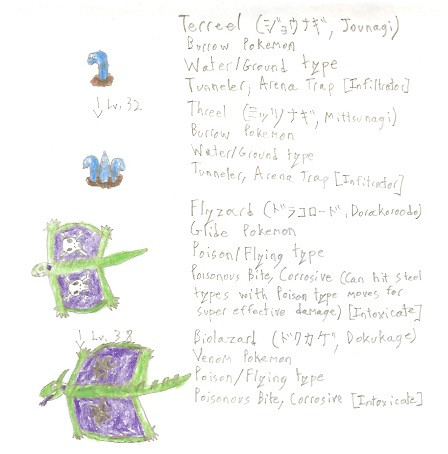 Terreel (ジョウナギ, Jounagi)
Burrow Pokemon
Water/Ground type
Tunneler, Arena Trap [Infiltrator]
↓ Lv. 32
Threel (ミッツナギ, Mittsunagi)
Burrow Pokemon
Water/Ground type
Tunneler, Arena Trap [Infiltrator]
Flyzard (ドラコロード, Dorakoroodo)
Glide Pokemon
Poison/Flying type
Poisonous Bite, Corrosive (Can hit steel
types with Poison type moves for
super effective damage) [Intoxicate]
↓ Lv. 38
Biolazard (ドクカゲ, Dokukage)
Venom Pokemon
Poison/Flying type
Poisonous Bite, Corrosive [Intoxicate]